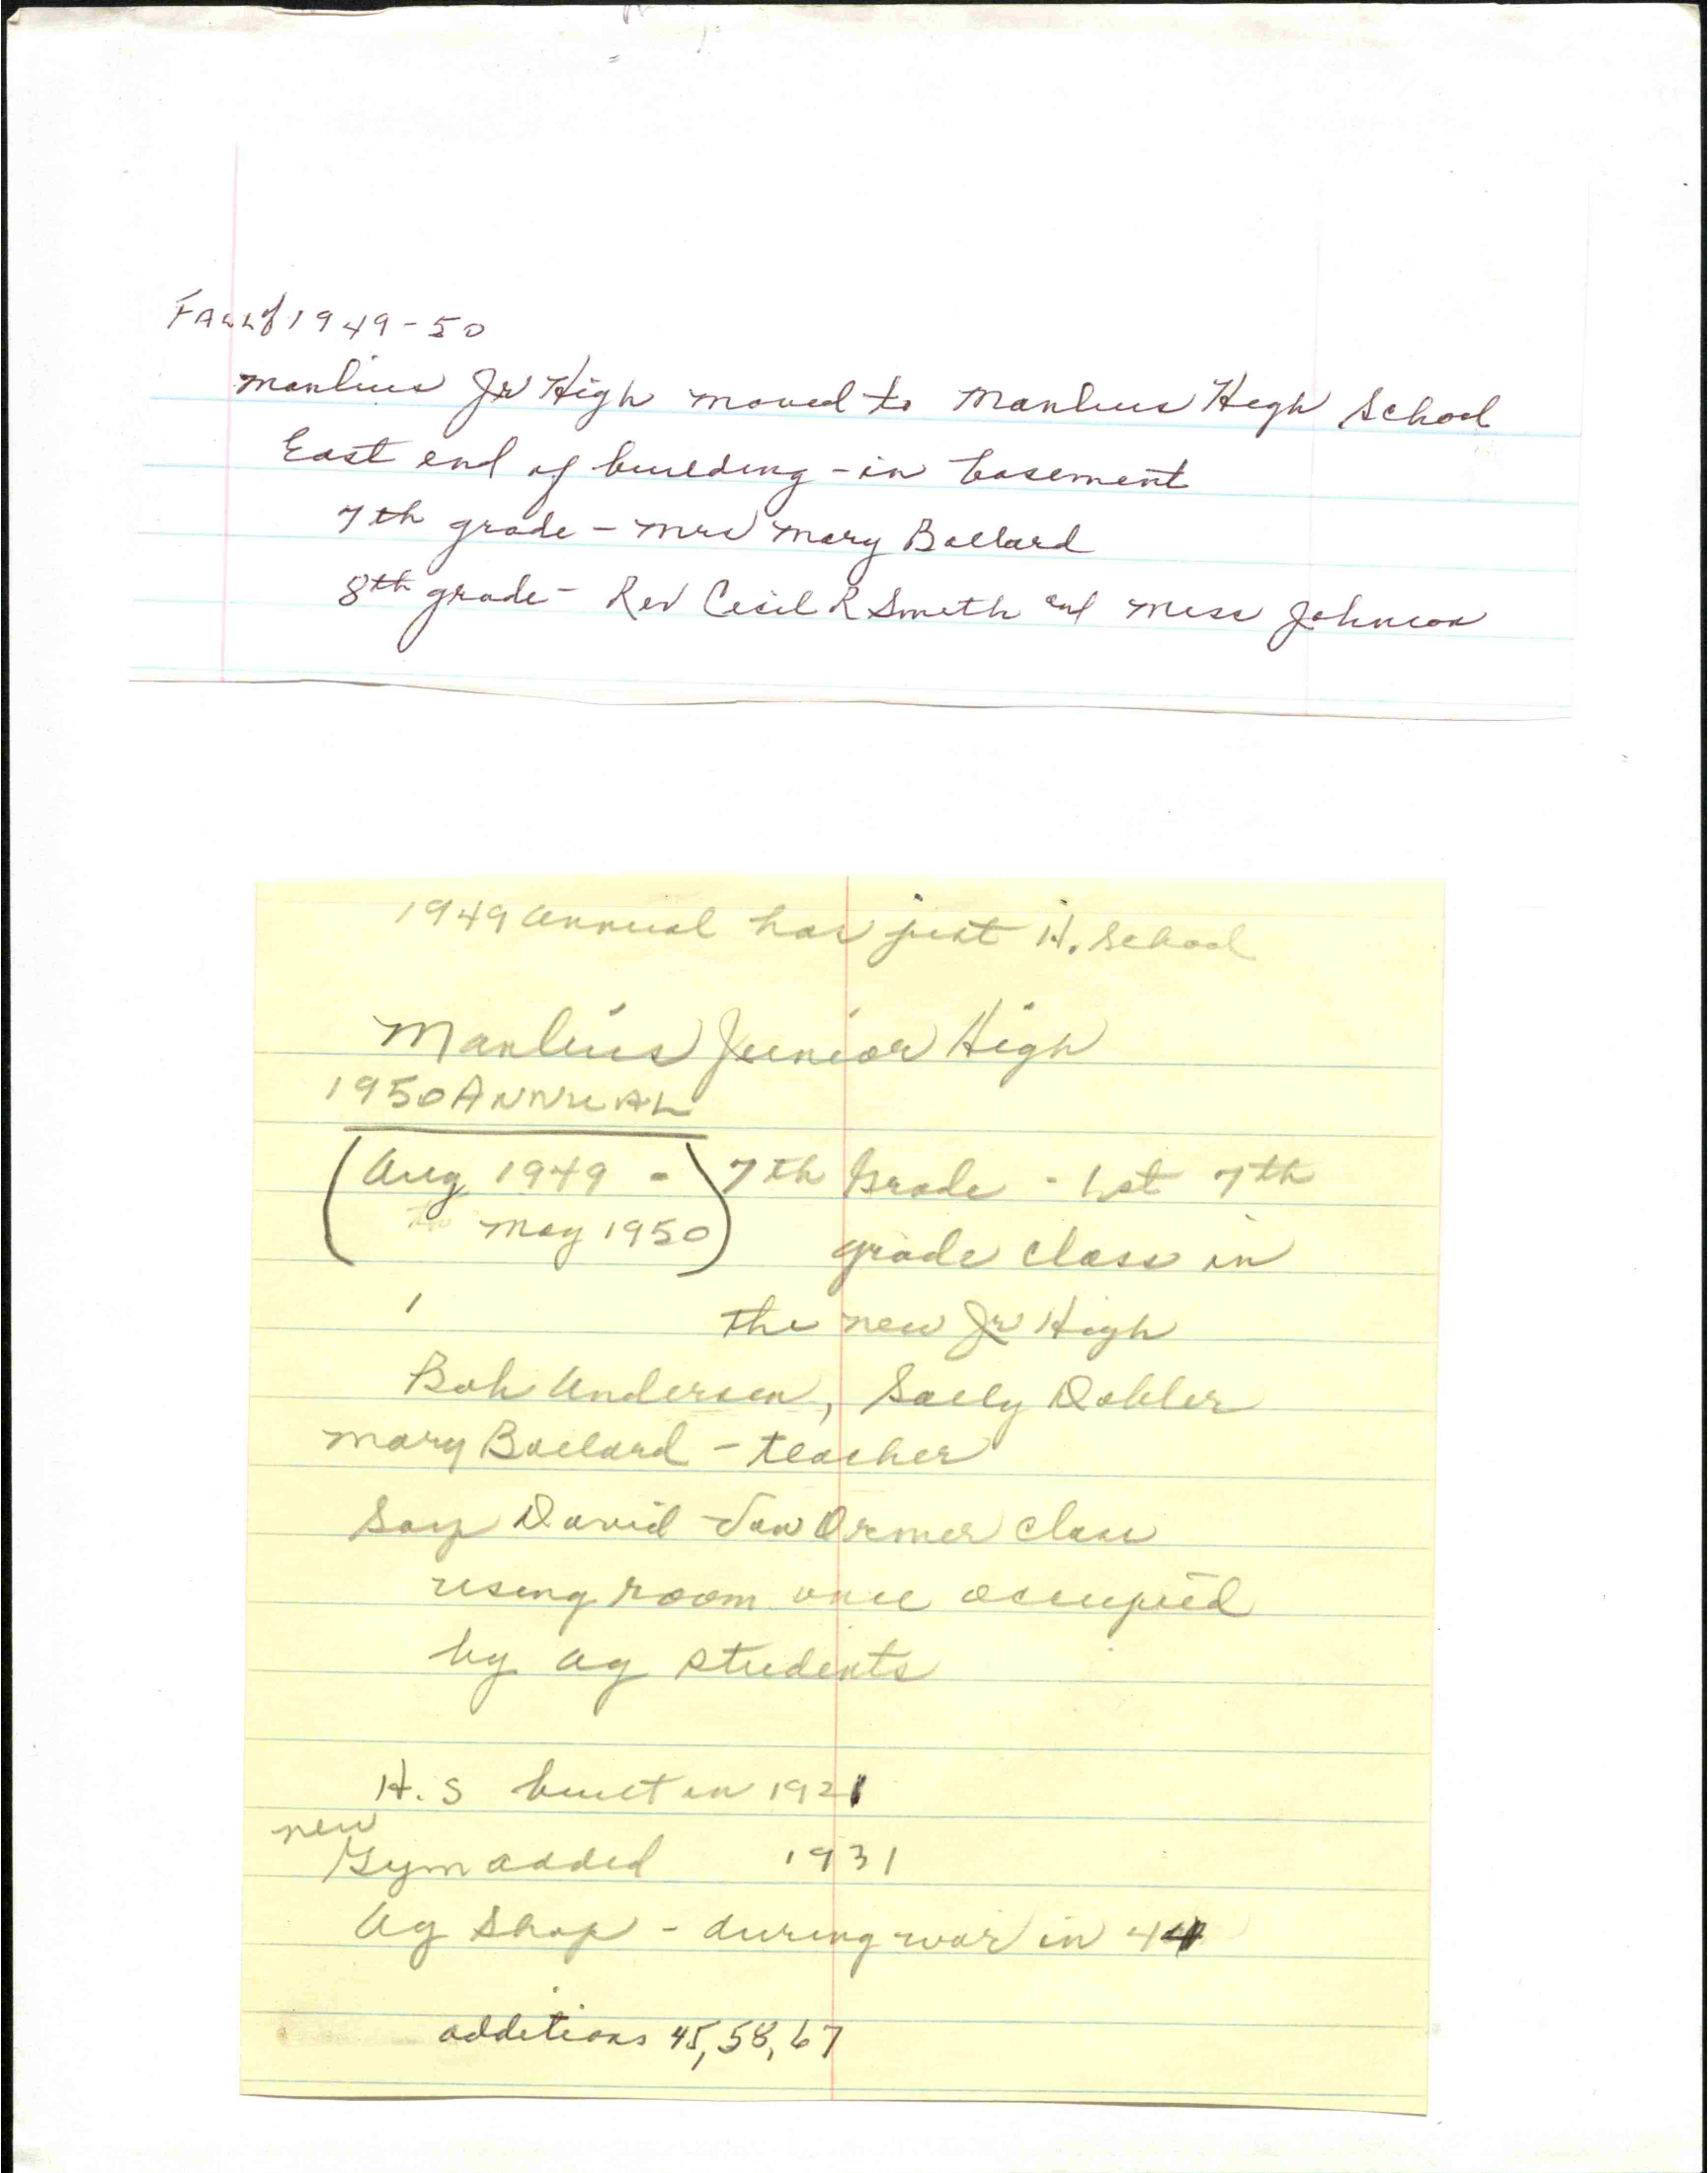 Fall of 1949-50
Manlius Jr High moved to Manlius High School
East end of building - in basement
7th grade - Mrs Mary Ballard
8th grade - Rev Cecil R Smith and Miss Johnson
1949 annual has just H. School
Manlius Junior High
1950 ANNUAL
(Aug 1949 - 7th Grade - 1st 7th
to May 1950) grade class in
the new Jr High
Bob Andersen, Sally Dobler
Mary Ballard - teacher
Say David Van Ormer class
using room once occupied
by ag students
H. S built in 1921
new
Gym added 1931
Ag Shop - during war in 44
additions 45, 58, 67